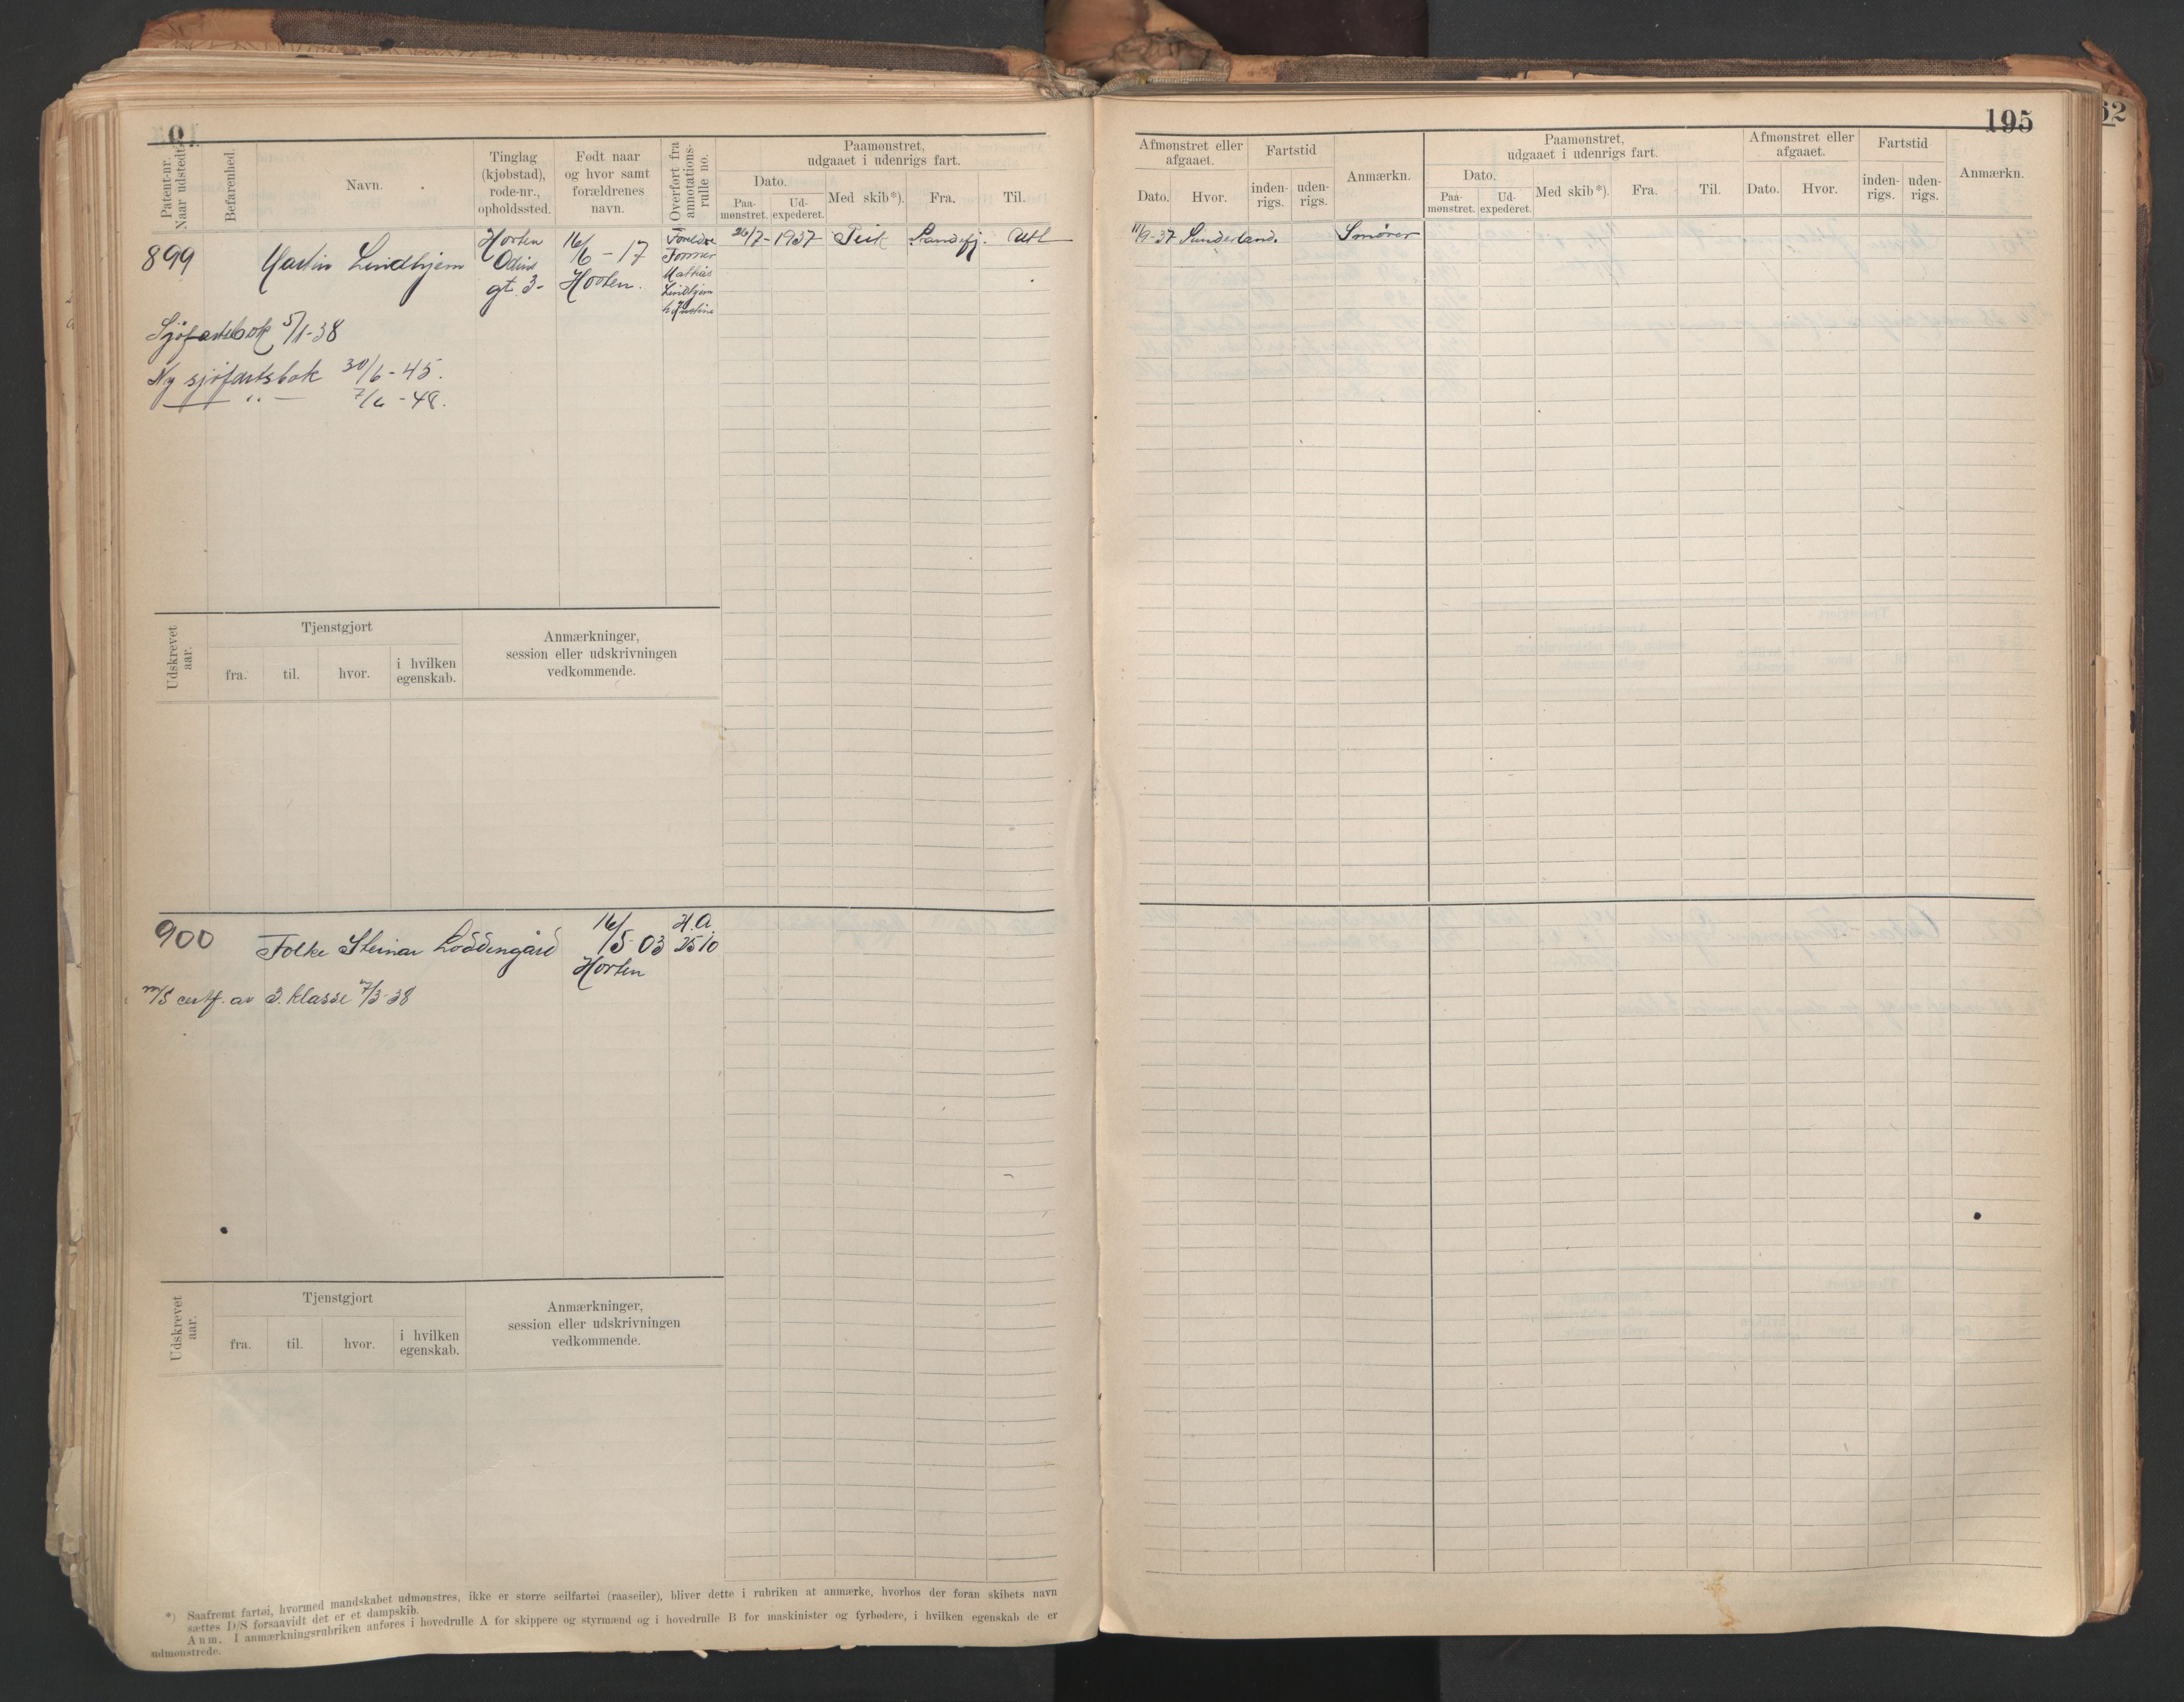 195
62
Patent-nr.
Naar udstedt.
Befarenhed.
Navn.
Tinglag
(kjøbstad),
rode-nr.,
opholdssted.
Født naar
og hvor samt
forældrenes
navn.
Overført fra
annotations-
rulle no.
Paamønstret,
udgaaet i udenrigs fart.
Dato.
Paa-
mønstret.
Ud-
expederet.
Med skib*).
Fra.
Til.
Afmønstret eller
afgaaet.
Dato.
Hvor.
Fartstid
inden-
rigs.
uden-
rigs.
Anmærkn.
Paamønstret,
udgaaet i udenrigs fart.
Dato.
Paa-
mønstret.
Ud-
expederet.
Med skib*).
Fra.
Til.
Afmønstret eller
afgaaet.
Dato.
Hvor.
Fartstid
inden-
rigs.
uden-
rigs.
Anmærkn.
899
Martin Lindhjem
Horten
Odins
gt. 3-
16/6 - 17
Horten.
Foreldre
Former
Mathias
Lindhjem
26/7-1937
Sandefj.
Utl
11/9-37 Sunderland.
Smører
Sjøfartsbok 5/1-38
Ny sjøfartsbok 30/6-45.
— " — 7/6-48.
Udskrevet
aar.
Tjenstgjort
fra.
til.
hvor.
i hvilken
egenskab.
Anmærkninger,
session eller udskrivningen
vedkommende.
900
Folke Steinar Loddengård
16/5 03
Horten
H.A.
2510
m/s certf. av 3. klasse 7/3-38
Udskrevet
aar.
Tjenstgjort
fra.
til.
hvor.
i hvilken
egenskab.
Anmærkninger,
session eller udskrivningen
vedkommende.
*) Saafremt fartøi, hvormed mandskabet udmønstres, ikke er større seilfartøi (raaseiler), bliver dette i rubriken at anmærke, hvorhos der foran skibets navn
sættes D/S forsaavidt det er et dampskib.
Anm. I anmærkningsrubriken anføres i hovedrulle A for skippere og styrmænd og i hovedrulle B for maskinister og fyrbødere, i hvilken egenskab de er
udmønstrede.